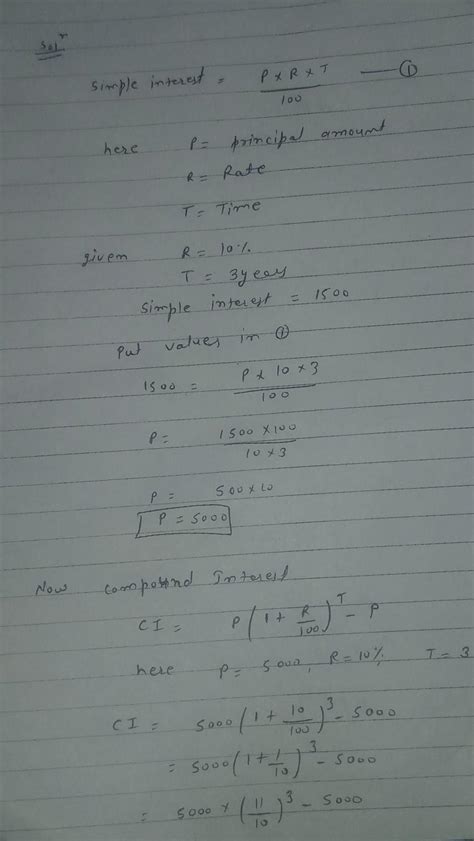 Solⁿ
Simple interest = P x R x T / 100 —— ①
here P = principal amount
R = Rate
T = Time
given R = 10%
T = 3 years
Simple interest = 1500
Put values in ①
1500 = P x 10 x 3 / 100
P = 1500 x 100 / 10 x 3
P = 500 x 10
P = 5000
Now compound Interest
CI = P (1 + R/100)^T - P
here P = 5000, R = 10% T = 3
CI = 5000 (1 + 10/100)^3 - 5000
= 5000 (1 + 1/10)^3 - 5000
= 5000 x (11/10)^3 - 5000